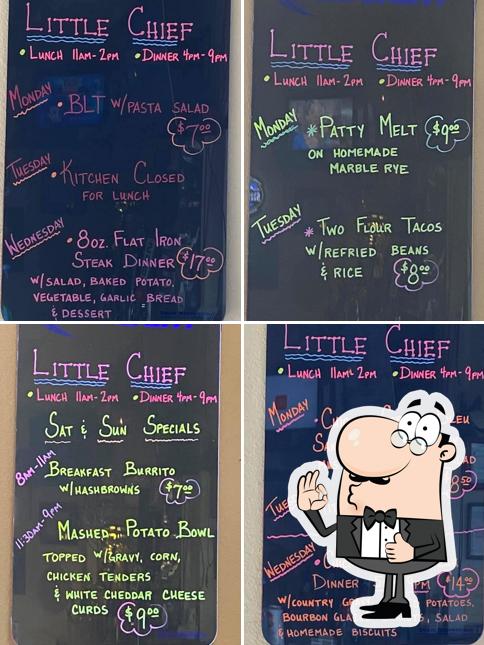 LITTLE CHIEF
• LUNCH 11AM-2PM • DINNER 4PM-9PM
MONDAY • BLT W/PASTA SALAD
$7.00
TUESDAY • KITCHEN CLOSED
FOR LUNCH
WEDNESDAY • 8OZ. FLAT IRON
STEAK DINNER $17.00
W/SALAD, BAKED POTATO,
VEGETABLE, GARLIC BREAD
& DESSERT
LITTLE CHIEF
• LUNCH 11AM-2PM • DINNER 4PM-9PM
MONDAY * PATTY MELT $9.00
ON HOMEMADE
MARBLE RYE
TUESDAY * TWO FLOUR TACOS
W/REFRIED BEANS
& RICE $8.00
LITTLE CHIEF
• LUNCH 11AM-2PM • DINNER 4PM-9PM
SAT & SUN SPECIALS
8AM-11AM BREAKFAST BURRITO
W/HASHBROWNS $7.00
11:30AM-9PM MASHED POTATO BOWL
TOPPED W/GRAVY, CORN,
CHICKEN TENDERS
& WHITE CHEDDAR CHEESE
CURDS $9.00
LITTLE CHIEF
• LUNCH 11AM-2PM • DINNER 4PM-9PM
MONDAY
WEDNESDAY
DINNER PM $14.00
W/COUNTRY POTATOES,
BOURBON SALAD
& HOMEMADE BISCUITS